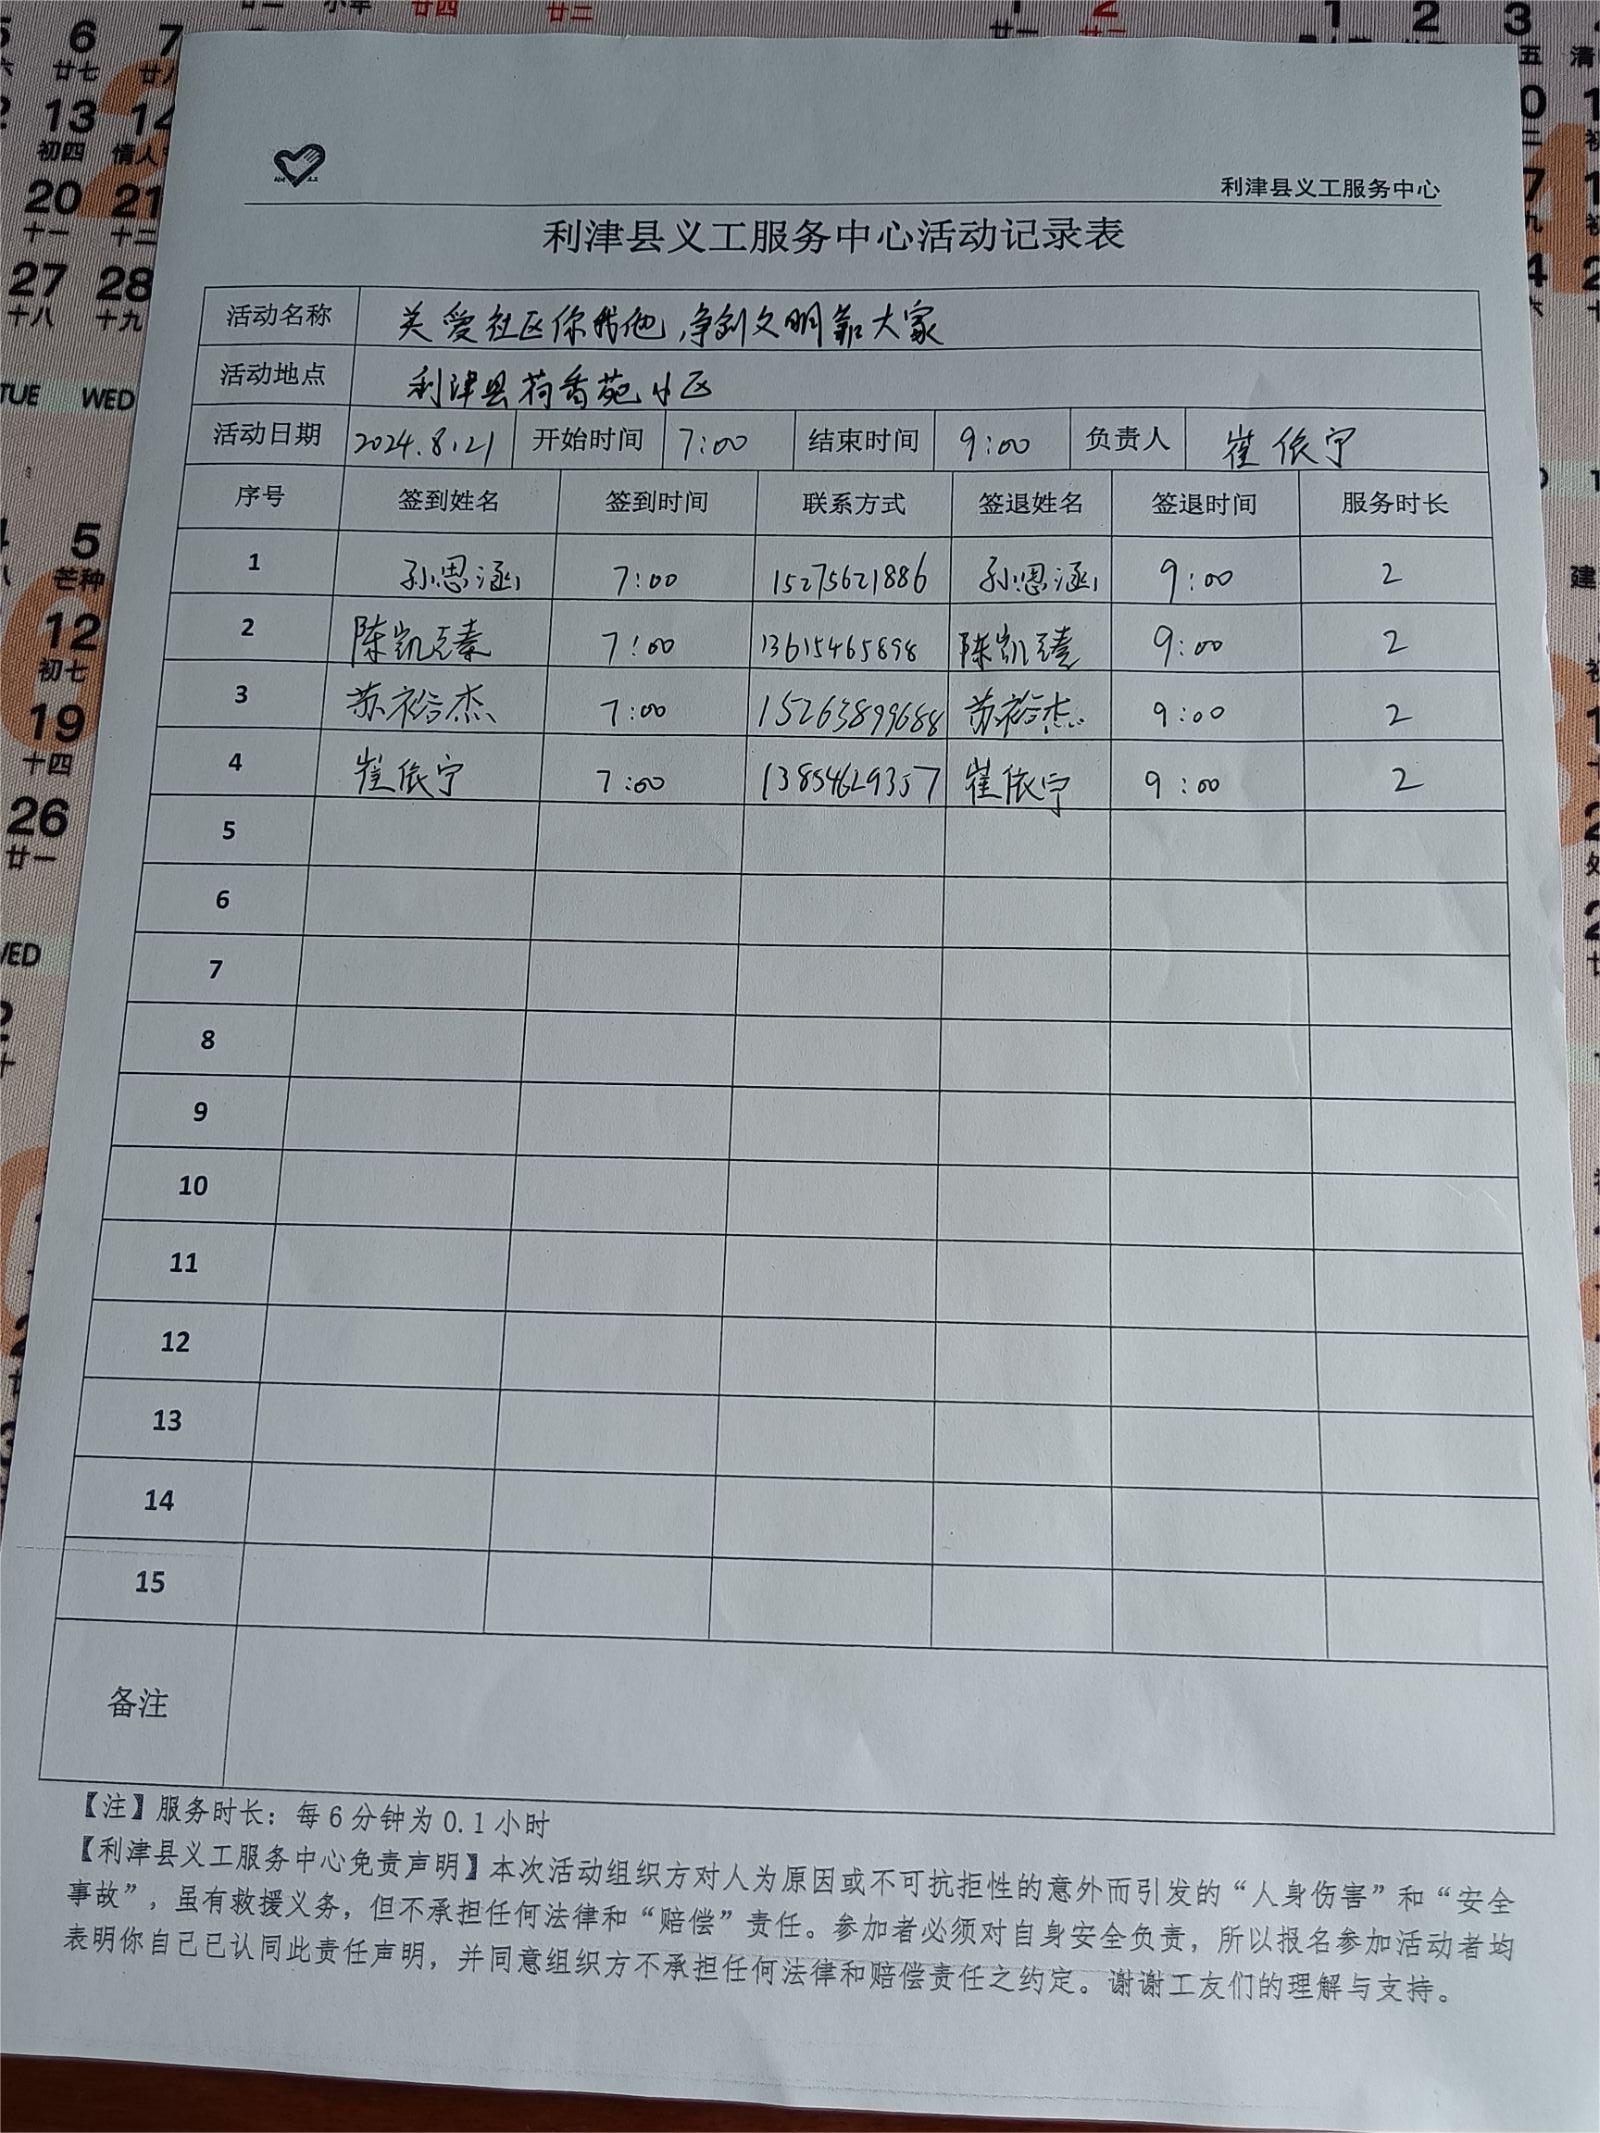 利津县义工服务中心
利津县义工服务中心活动记录表
活动名称 关爱社区你我他,争创文明靠大家
活动地点 利津县荷香苑小区
活动日期 2024.8.21 开始时间 7:00 结束时间 9:00 负责人 崔依宁
序号 签到姓名 签到时间 联系方式 签退姓名 签退时间 服务时长
1 孙思涵 7:00 15275621886 孙思涵 9:00 2
2 陈凯臻 7:00 13615465898 陈凯臻 9:00 2
3 苏裕杰 7:00 15263899688 苏裕杰 9:00 2
4 崔依宁 7:00 13854629357 崔依宁 9:00 2
5
6
7
8
9
10
11
12
13
14
15
备注
【注】服务时长：每6分钟为0.1小时
【利津县义工服务中心免责声明】本次活动组织方对人为原因或不可抗拒性的意外而引发的“人身伤害”和“安全
事故”，虽有救援义务，但不承担任何法律和“赔偿”责任。参加者必须对自身安全负责，所以报名参加活动者均
表明你自己已认同此责任声明，并同意组织方不承担任何法律和赔偿责任之约定。谢谢工友们的理解与支持。